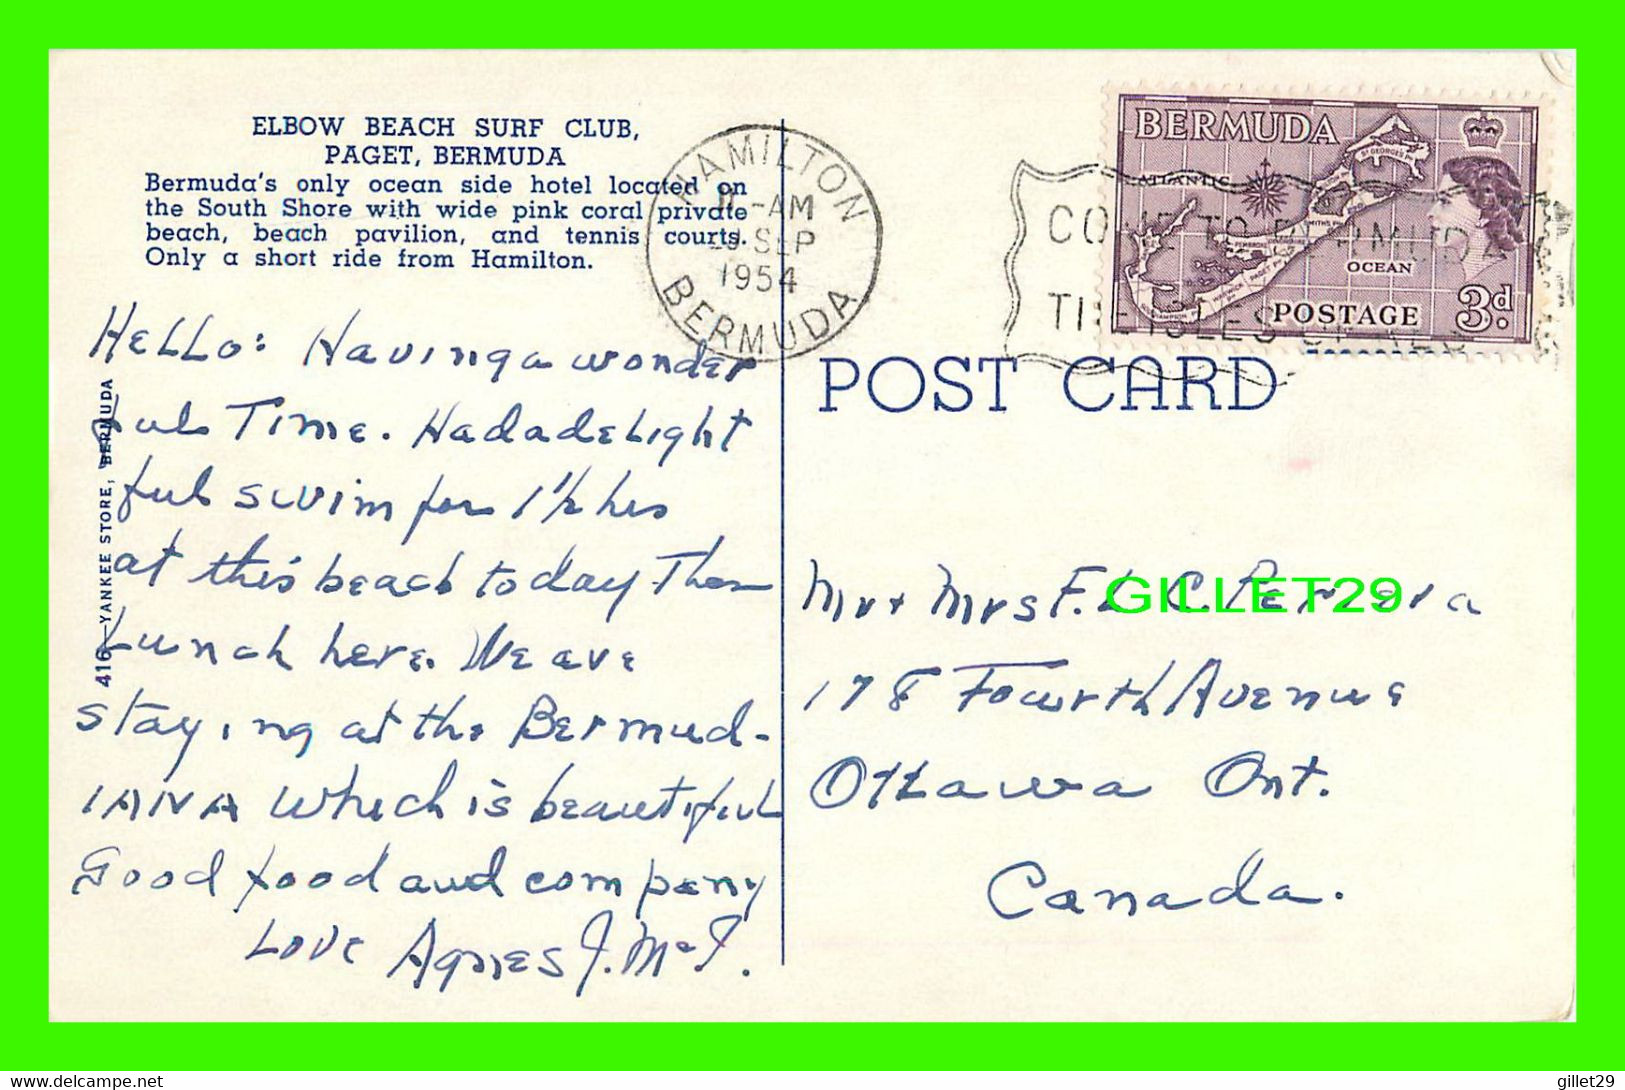 ELBOW BEACH SURF CLUB,
PAGET, BERMUDA
Bermuda's only ocean side hotel located on
the South Shore with wide pink coral private
beach, beach pavilion, and tennis courts.
Only a short ride from Hamilton.
HAMILTON
11-AM
SEP
1954
BERMUDA
COME TO BERMUDA
THE ISLES OF
BERMUDA
ATLANTIC
OCEAN
POSTAGE 3d.
POST CARD
416—YANKEE STORE, BERMUDA
Hello: Having a wonder
ful Time. Had a delight
ful swim for 1½ hrs
at this beach today Then
Lunch here. We are
staying at the Bermud-
iana which is beautiful
Good food and company
Love Agnes J. McT.
Mr + Mrs F. L. C.
178 Fourth Avenue
Ottawa Ont.
Canada.
GILLET29
gillet29